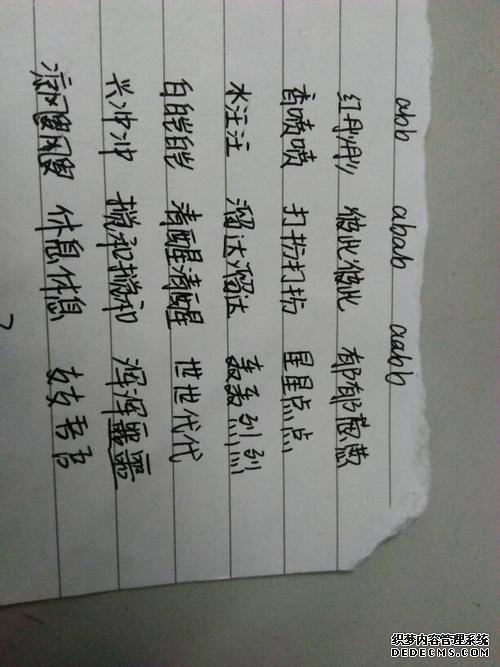 abb abab aabb
红彤彤 彼此彼此 郁郁葱葱
香喷喷 打扮打扮 星星点点
水汪汪 溜达溜达 轰轰烈烈
白皑皑 清醒清醒 世世代代
兴冲冲 搅和搅和 浑浑噩噩
凉飕飕 休息休息 支支吾吾
织梦内容管理系统
DEDECMS.COM